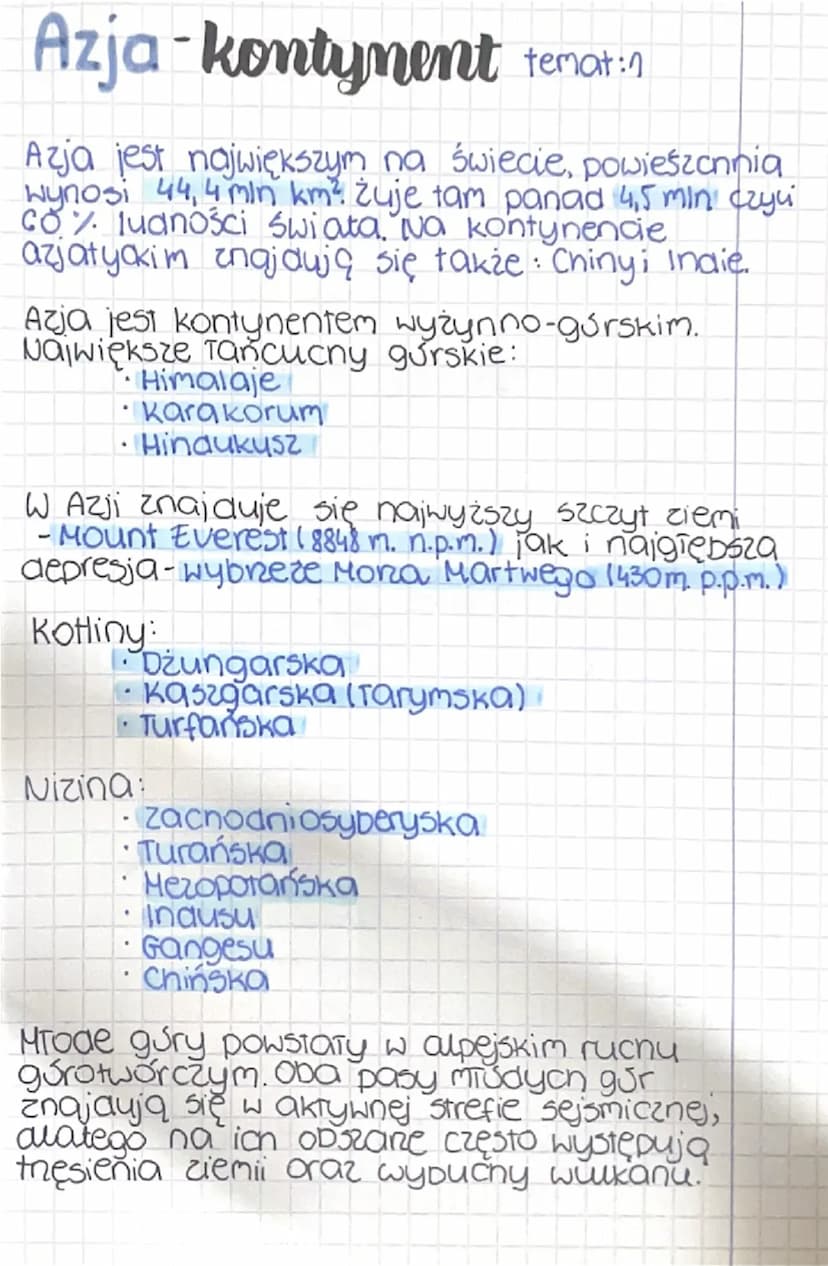 Azja - kontynent temat:1
Azja jest największym na świecie, powieszchnia
wynosi 44,4 mln km². Żyje tam panad 4,5 mln czyli
60 % ludności świata. Na kontynencie
azjatyckim znajdują się także : Chiny i Indie.
Azja jest kontynentem wyżynno-górskim.
Największe łańcuchy górskie:
· Himalaje
· Karakorum
· Hindukusz
W Azji znajduje się najwyższy szczyt ziemi
- Mount Everest (8848 m. n.p.m.) jak i najgłębsza
depresja - wybrzeże Morza Martwego (430m. p.p.m.)
Kotliny:
· Dżungarska
· Kaszgarska (Tarymska)
· Turfańska
Nizina:
· Zachodniosyberyska
· Turańska
· Mezopotańska
· Indusu
· Gangesu
· Chińska
Młode góry powstały w alpejskim ruchu
górotwórczym. Oba pasy młodych gór
znajdują się w aktywnej strefie sejsmicznej,
dlatego na ich obszarze często występują
trzęsienia ziemii oraz wybuchy wulkanu.